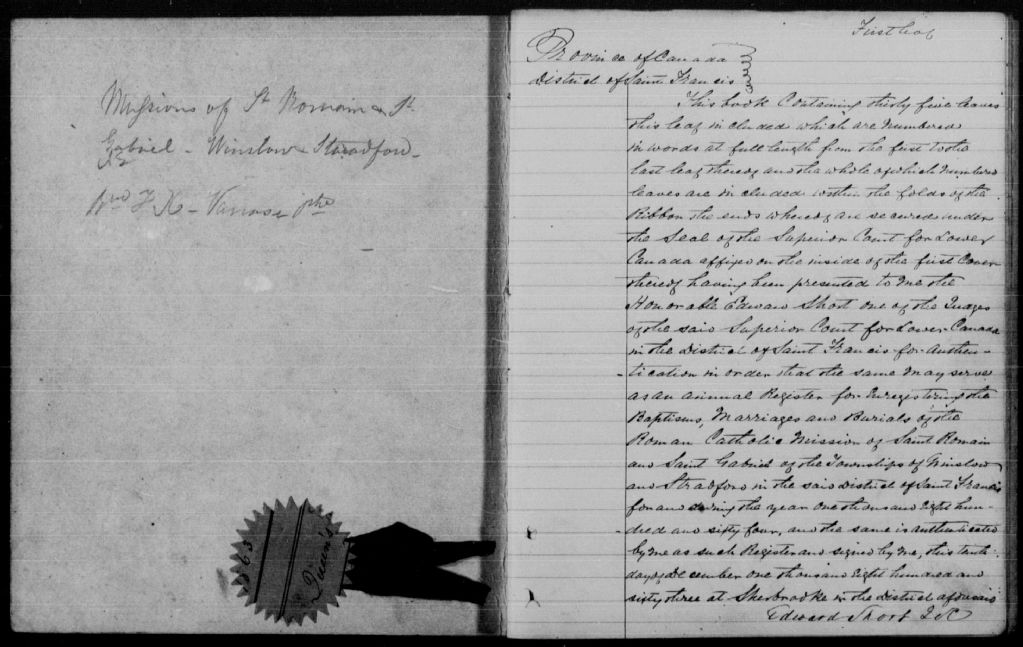 Missions of St Romain & St
Gabriel - Winslow - Stradford -
F. X. - ptre
1863
Queen's
First leaf
Province of Canada
District of Saint Francis
This book Containing thirty five leaves
this leaf included which are Numbered
in words at full length from the first to the
last leaf thereof and the whole of which Numbered
leaves are included within the folds of the
Ribbon the ends whereof are secured under
the Seal of the Superior Court for Lower
Canada affixed on the inside of the first Cover
thereof having been presented to me the
Honorable Edward Short one of the Judges
of the said Superior Court for Lower Canada
in the District of Saint Francis for authen-
tication in order that the same may serve
as an annual Register for Enregistering the
Baptisms, Marriages and Burials of the
Roman Catholic Mission of Saint Romain
and Saint Gabriel of the Townships of Winslow
and Stradford in the said District of Saint Francis
for and during the year One thousand Eight hun-
dred and sixty four, and the same is authenticated
by me as such Register and signed by me, this tenth
day of December one thousand Eight hundred and
sixty three at Sherbrooke in the district aforesaid
Edward Short J.S.C